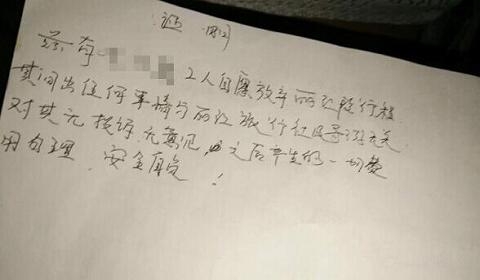 证明
兹有 2人自愿放弃丽江段行程
其间出任何事情与丽江旅行社及导游无关
对其无投诉无意见，之后产生的一切费
用自理、安全自负！